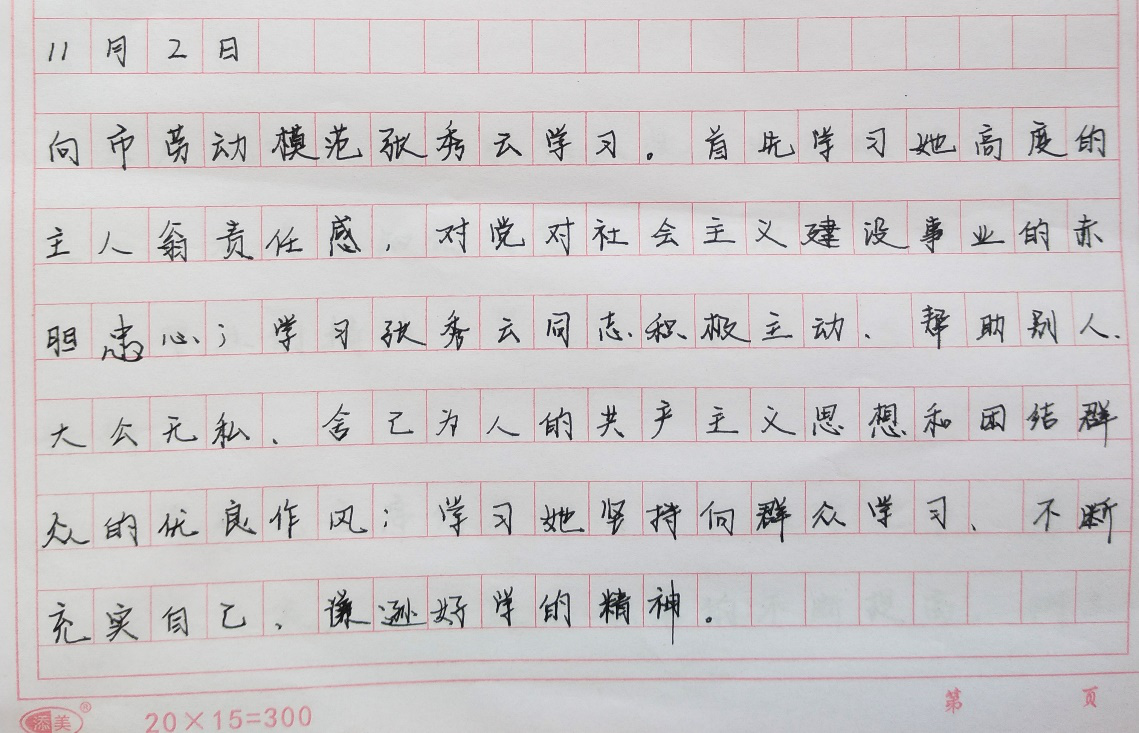 11月2日
向市劳动模范张秀云学习。首先学习她高度的
主人翁责任感，对党对社会主义建设事业的赤
胆忠心；学习张秀云同志积极主动、帮助别人、
大公无私、舍己为人的共产主义思想和团结群
众的优良作风；学习她坚持向群众学习、不断
充实自己、谦逊好学的精神。
添美®
20×15=300
第 页